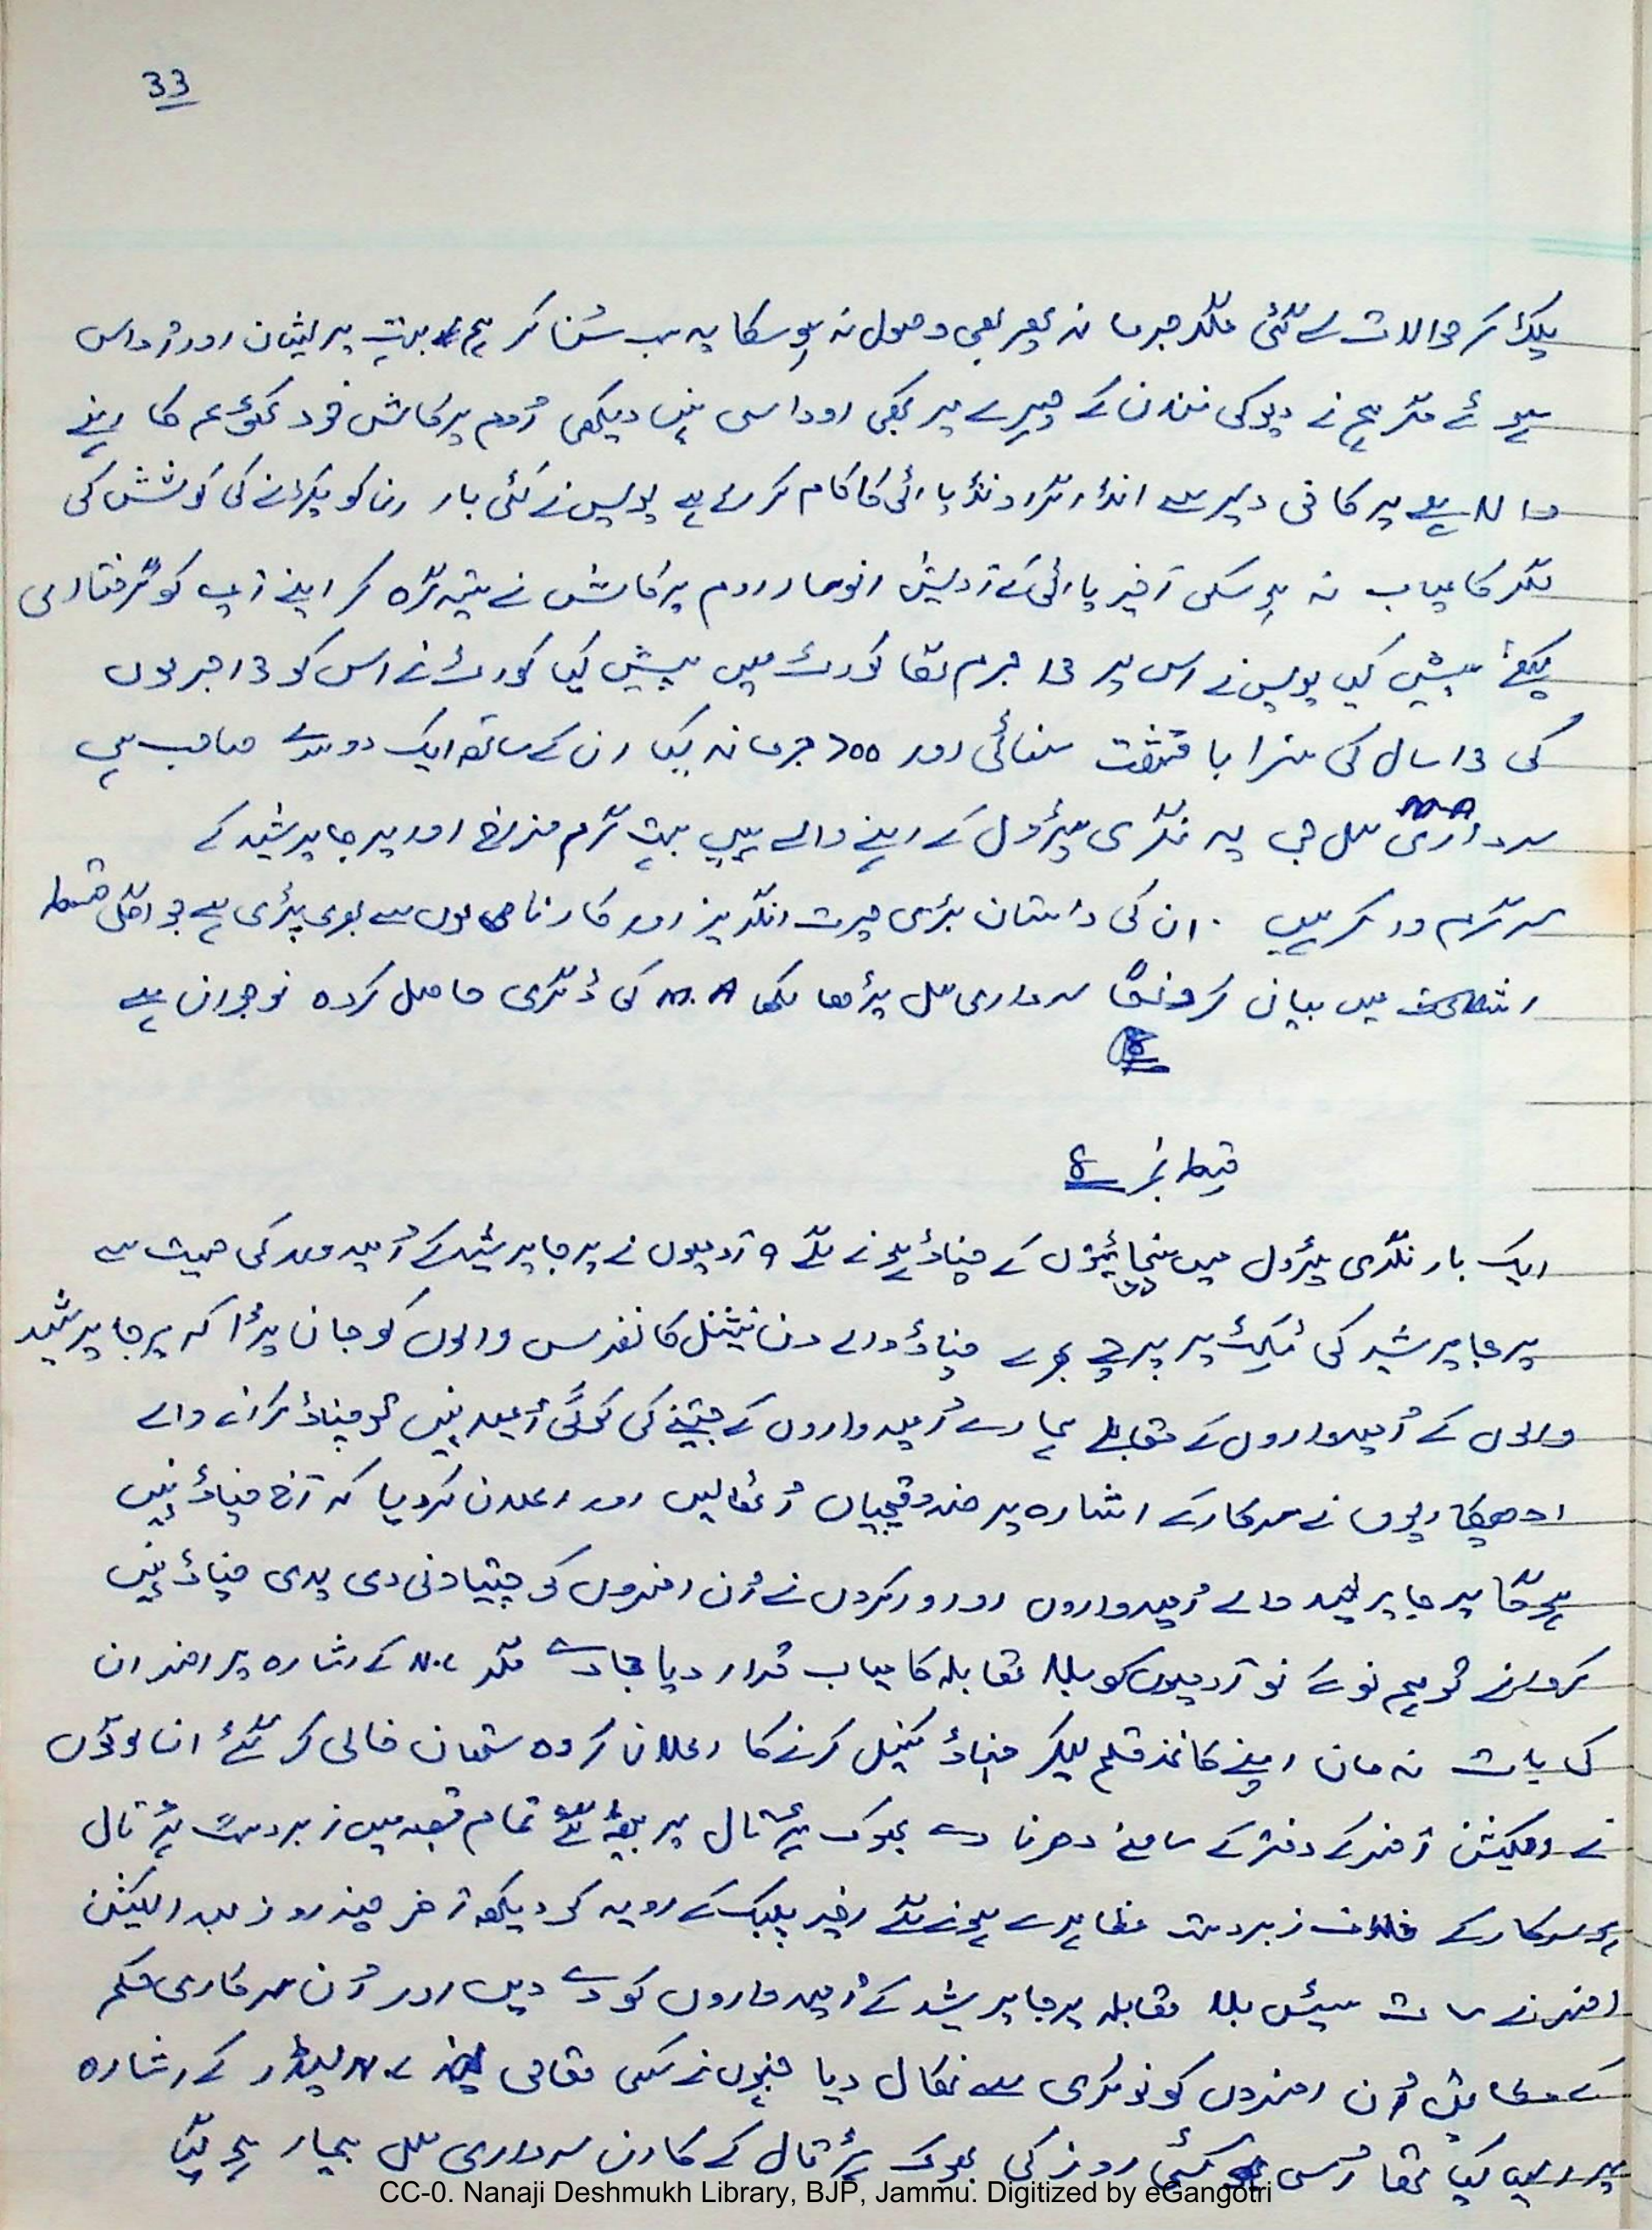 33
پکڑ کر حوالات لے گئی مگر جرمانہ پھر بھی وصول نہ ہو سکا یہ سب سُن کر ہم بہت پریشان اور اُداس
ہوئے مگر ہم نے دیوکی نندن کے چہرے پر بھی اوداسی نہیں دیکھی اُوم پرکاش خود کا رہنے
والا ہے پر کافی دیر سے انڈر گراونڈ پارٹی کا کام کر رہے پولیس نے کئی بار ان کو پکڑنے کی کوشش کی
مگر کامیاب نہ ہو سکی آخیر پارٹی کے آدیش انوسار اوم پرکاش نے ستیہ گرہ کر اپنے آپ کو گرفتاری
کیلئے پیش کیا پولیس نے اس پر 13 جرم لگا کورٹ میں پیش کیا کورٹ نے اس کو 13 جرموں
کی 13 سال کی سزا با مشقت سنائی اور 700 جرمانہ کیا ان کے ساتھ ایک دوسرے صاحب ہیں
M.A
سرداری مل جی یہ نگری پیڑول کے رہنے والے ہیں بہت گرم مزاج اور پرجا پرشید کے
سرگرم ورکر ہیں . ان کی داستان بڑی حیرت انگریز اور کارناموں سے بھری پڑی ہے جو اگلی قسط
میں بیان کرونگا سرداری مل پڑھا لکھا M.A کی ڈگری حاصل کردہ نوجوان ہے
قسط نمبر 8
ایک بار نگری پیڑول میں پنچائیتوں کے چناؤ ہونے لگے 9 آدمیوں نے پرجا پرشید کے اُمیدوار کی حیثیت سے
پرجا پرشید کی ٹکیٹ پر پرچے بھرے چناؤ والے دن نیشنل کانفرنس والوں کو جان پڑا کہ پرجا پرشید
والوں کے اُمیدواروں کے مقابلے ہمارے اُمیدواروں کے جیتنے کی کوئی اُمید نہیں تو چناؤ کرانے والے
ادھیکاریوں نے سرکار کے اشارہ پر صندوقچیاں اُٹھا لیں اور اعلان کر دیا کہ آج چناؤ نہیں
ہوگا پرجا پرشید والے اُمیدواروں اور ورکروں نے اُن افسروں کو چیتاونی دی یدی چناؤ نہیں
کروانے تو ہم نو کے نو آدمیوں کو بلا مقابلہ کامیاب قرار دیا جاوے مگر N.C کے اشارہ پر افسر ان
کی بات نہ مان اپنے کاغذ قلم لیکر چناؤ کینسل کرنے کا اعلان کر وہ ستھان خالی کر گئے ان لوگوں
نے الیکشن آفسر کے دفتر کے سامنے دھرنا دے بھوک ہڑتال پر بیٹھ گئے تمام قصبہ میں زبردست ہڑتال
ہو سرکار کے خلاف زبردست مظاہرے ہونے لگے اخیر پبلک کے رویہ کو دیکھ آخر چند روز بعد الیکشن
افسر نے سات سیٹیں بلا مقابلہ پرجا پرشد کے اُمیدواروں کو دے دیں اور اُن سرکاری حکم
کے مطابق اُن افسروں کو نوکری سے نکال دیا جنہوں نے کسی مقامی N.C لیڈر کے اشارہ
پر ایسا کیا تھا اُسی کئی روز کی بھوک ہڑتال کے کارن سرداری مل بیمار ہو گیا
CC-0. Nanaji Deshmukh Library, BJP, Jammu. Digitized by eGangotri